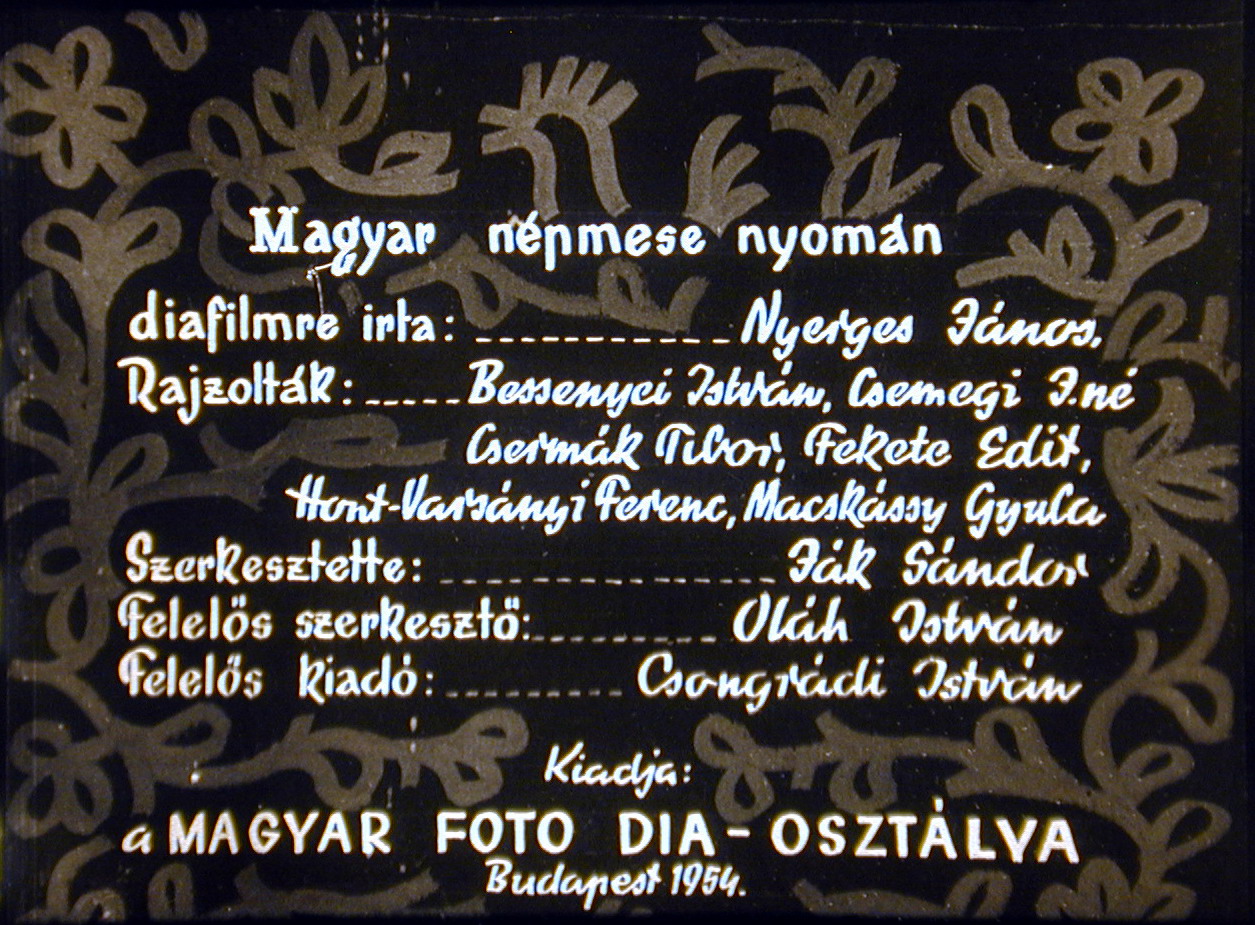 Magyar népmese nyomán
diafilmre irta: Nyerges János.
Rajzolták: Bessenyei István, Csemegi J.né
Csermák Tibor, Fekete Edit,
Hont-Varsányi Ferenc, Macskássy Gyula
Szerkesztette: Ják Sándor
Felelős szerkesztő: Oláh István
Felelős kiadó: Csongrádi István
Kiadja:
a MAGYAR FOTO DIA-OSZTÁLYA
Budapest 1954.